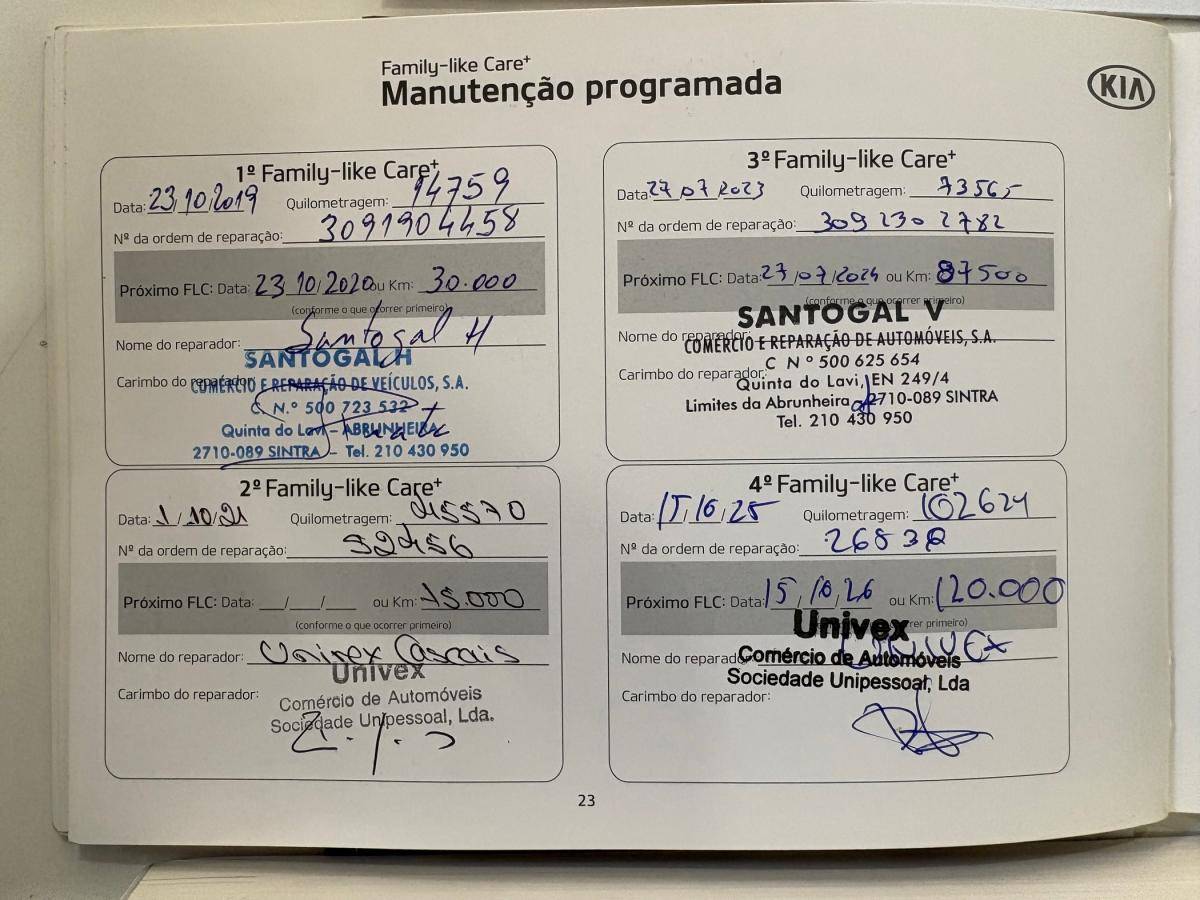 Family-like Care+
Manutenção programada
KIA
1º Family-like Care+
Data: 23/10/2019 Quilometragem: 14759
Nº da ordem de reparação: 3091904458
Próximo FLC: Data: 23/10/2020 ou Km: 30.000
(conforme o que ocorrer primeiro)
Nome do reparador: Santogal H
SANTOGAL H
Carimbo do reparador:
COMÉRCIO E REPARAÇÃO DE VEÍCULOS, S.A.
C. N.º 500 723 532
Quinta do Lavi – ABRUNHEIRA
2710-089 SINTRA – Tel. 210 430 950
2º Family-like Care+
Data: 1/10/21 Quilometragem: 45570
Nº da ordem de reparação: 52456
Próximo FLC: Data: __/__/__ ou Km: 15.000
(conforme o que ocorrer primeiro)
Nome do reparador: Univex Cascais
Univex
Carimbo do reparador:
Comércio de Automóveis
Sociedade Unipessoal, Lda.
3º Family-like Care+
Data: 27/07/2023 Quilometragem: 73565
Nº da ordem de reparação: 309 230 2782
Próximo FLC: Data: 27/07/2024 ou Km: 87500
(conforme o que ocorrer primeiro)
SANTOGAL V
Nome do reparador:
COMÉRCIO E REPARAÇÃO DE AUTOMÓVEIS, S.A.
C N º 500 625 654
Carimbo do reparador:
Quinta do Lavi, EN 249/4
Limites da Abrunheira 2710-089 SINTRA
Tel. 210 430 950
4º Family-like Care+
Data: 15/10/25 Quilometragem: 102624
Nº da ordem de reparação: 26832
Próximo FLC: Data: 15/10/26 ou Km: 120.000
rer primeiro)
Univex
Nome do reparador: UNIVEX
Comércio de Automóveis
Sociedade Unipessoal, Lda
Carimbo do reparador:
23